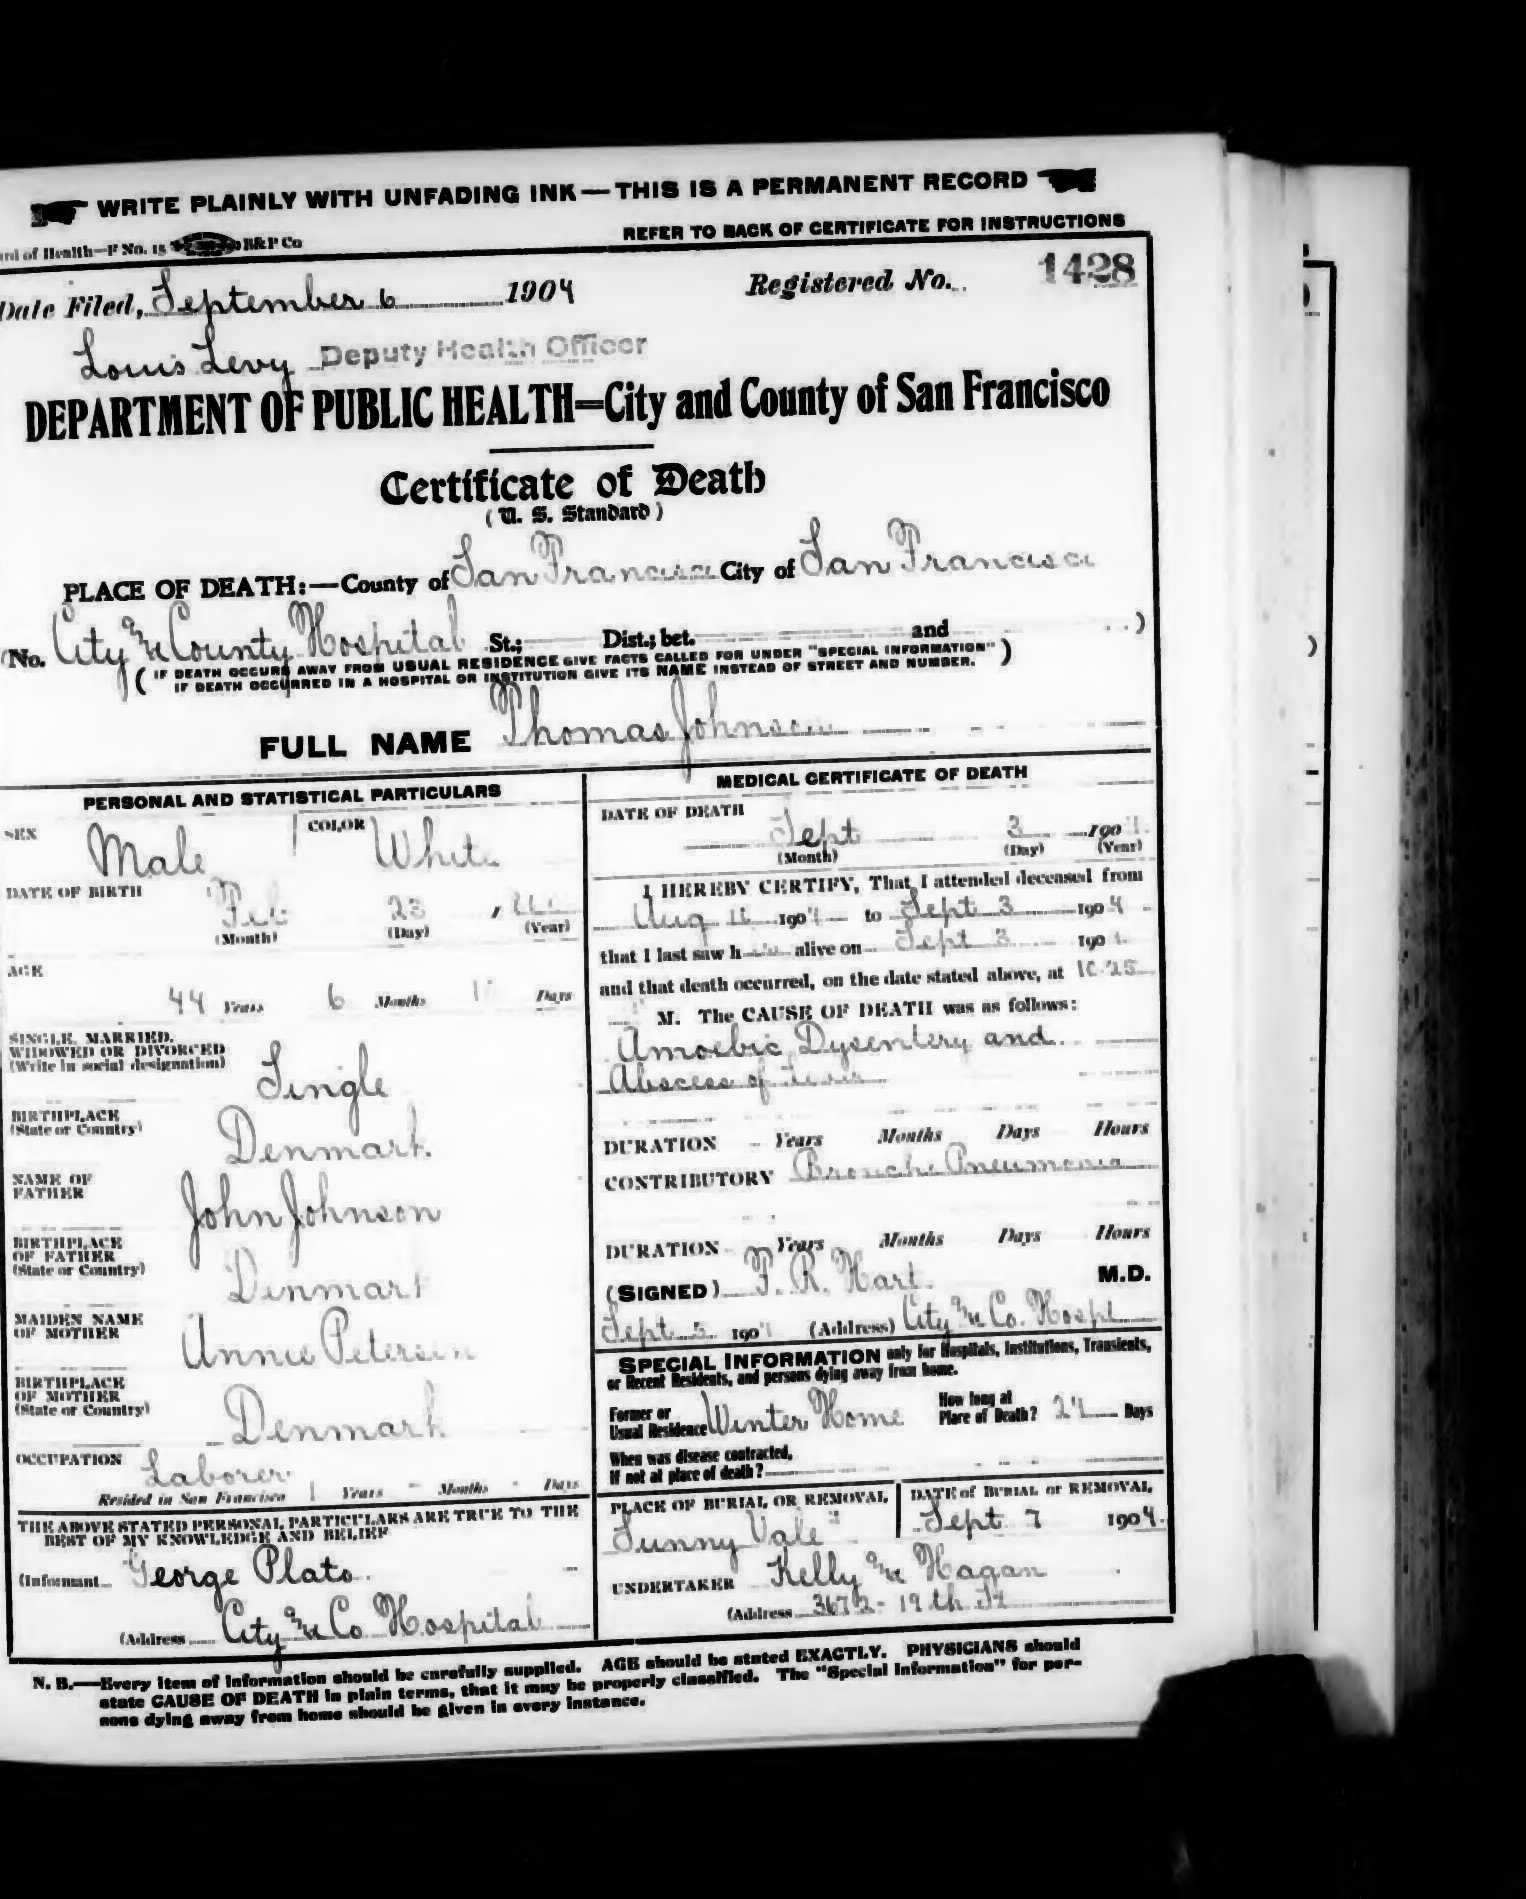 WRITE PLAINLY WITH UNFADING INK—THIS IS A PERMANENT RECORD
of Health—F No. 15 B&P Co
REFER TO BACK OF CERTIFICATE FOR INSTRUCTIONS
Date Filed, September 6 1904 Registered No. 1428
Louis Levy Deputy Health Officer
DEPARTMENT OF PUBLIC HEALTH=City and County of San Francisco
Certificate of Death
(U. S. Standard)
PLACE OF DEATH:—County of San Francisco City of San Francisco
(No. City & County Hospital St.; Dist.; bet. and )
( IF DEATH OCCURS AWAY FROM USUAL RESIDENCE GIVE FACTS CALLED FOR UNDER "SPECIAL INFORMATION" )
IF DEATH OCCURRED IN A HOSPITAL OR INSTITUTION GIVE ITS NAME INSTEAD OF STREET AND NUMBER.
FULL NAME Thomas Johnson
PERSONAL AND STATISTICAL PARTICULARS
SEX Male COLOR White
DATE OF BIRTH Feb 23
(Month) (Day) (Year)
AGE
44 Years 6 Months Days
SINGLE, MARRIED,
WIDOWED OR DIVORCED
(Write in social designation) Single
BIRTHPLACE
(State or Country) Denmark
NAME OF
FATHER John Johnson
BIRTHPLACE
OF FATHER
(State or Country) Denmark
MAIDEN NAME
OF MOTHER Annie Petersen
BIRTHPLACE
OF MOTHER
(State or Country) Denmark
OCCUPATION Laborer
Resided in San Francisco 1 Years - Months - Days
THE ABOVE STATED PERSONAL PARTICULARS ARE TRUE TO THE
BEST OF MY KNOWLEDGE AND BELIEF
(Informant George Plato
(Address City & Co Hospital
MEDICAL CERTIFICATE OF DEATH
DATE OF DEATH
Sept 3 190
(Month) (Day) (Year)
I HEREBY CERTIFY, That I attended deceased from
Aug 190 to Sept 3 1904
that I last saw h alive on Sept 3 190
and that death occurred, on the date stated above, at 10.25
M. The CAUSE OF DEATH was as follows:
Amoebic Dysentery and
Abscess of Liver
DURATION Years Months Days Hours
CONTRIBUTORY Broncho Pneumonia
DURATION Years Months Days Hours
(SIGNED) F. R. Hart. M.D.
Sept 5 190 (Address) City & Co. Hospl
SPECIAL INFORMATION only for Hospitals, Institutions, Transients,
or Recent Residents, and persons dying away from home.
Former or
Usual Residence Winter Home
How long at
Place of Death? Days
When was disease contracted,
If not at place of death?
PLACE OF BURIAL OR REMOVAL
Sunny Vale
DATE of BURIAL or REMOVAL
Sept 7 1904
UNDERTAKER Kelly & Hagan
(Address 19th St
N. B.—Every item of information should be carefully supplied. AGE should be stated EXACTLY. PHYSICIANS should
state CAUSE OF DEATH in plain terms, that it may be properly classified. The "Special Information" for per-
sons dying away from home should be given in every instance.